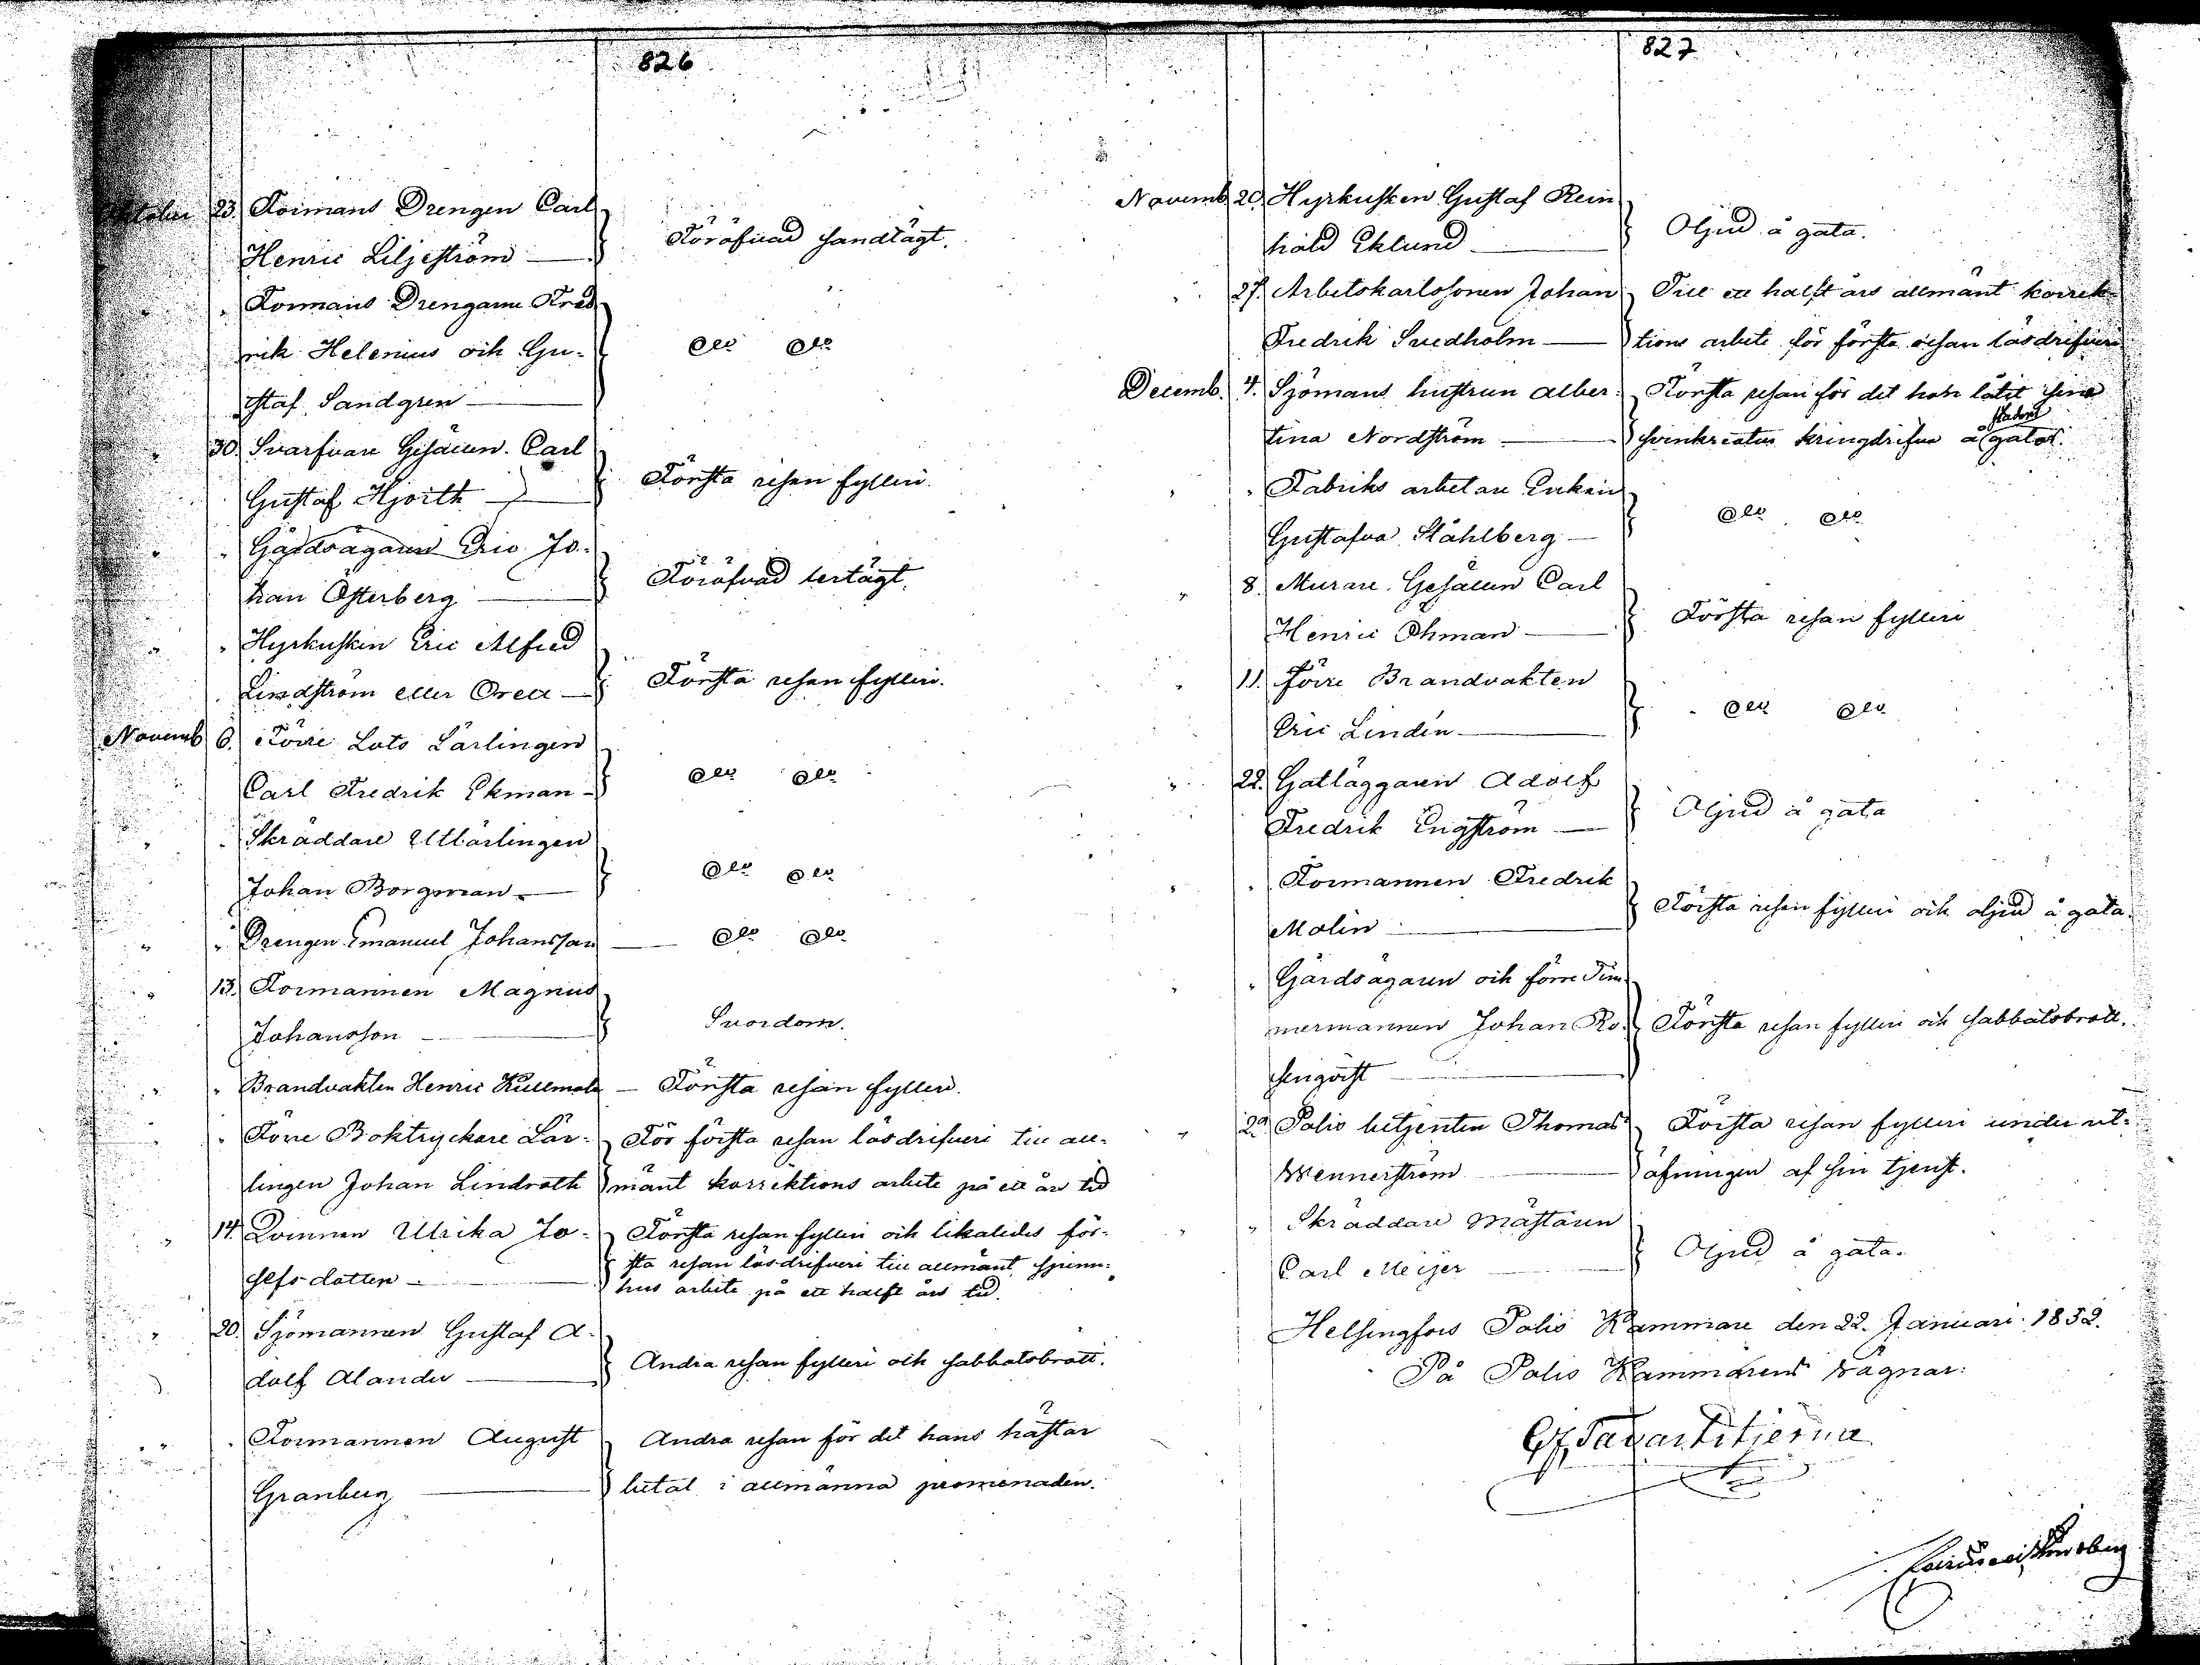 826
Oktober 23. Formans Drengen Carl
Henric Liljeström — Föröfvad sandtägt.
" Formans Drengarne Fred
rik Helenius och Gu-
staf Sandgren — dito dito
30. Svarfvare Gesällen Carl
Gustaf Hjorth — Första resan fylleri.
" Gårdsägaren Eric Jo-
han Österberg — Föröfvad lertägt.
" Hyrkusken Eric Alfred
Lindström eller Orell — Första resan fylleri.
Novemb 6. Förre Lots Lärlingen
Carl Fredrik Ekman — dito dito
" Skräddare Utlärlingen
Johan Borgman — dito dito
" Drengen Emanuel Johansson — dito dito
13. Formannen Magnus
Johansson — Svordom.
" Brandvakten Henric Kullmola — Första resan fylleri.
" Förre Boktryckare Lär- För första resan lösdrifveri till all-
lingen Johan Lindroth mänt korrektions arbete på ett års tid
14. Qvinnan Ulrika Jo- Första resan fylleri och likaledes för-
sefsdotter — sta resan lösdrifveri till allmänt spinn-
hus arbete på ett halft års tid.
20. Sjömannen Gustaf A-
dolf Alander — Andra resan fylleri och sabbatsbrott.
" Formannen August Andra resan för det hans hästar
Granberg — betat i allmänna promenaden.
827
Novemb. 20. Hyrkusken Gustaf Rein
hold Eklund — Oljud å gata.
" 27. Arbetskarlssonen Johan Till ett halft års allmänt korrek-
Fredrik Svedholm — tions arbete för första resan lösdrifveri
Decemb. 4. Sjömans hustrun Alber- Första resan för det hon låtit sina
tina Nordström — svinkreatur kringdrifva å stadens gator.
" Fabriks arbetare Enkan
Gustafva Ståhlberg — dito dito
" 8. Murare Gesällen Carl
Henric Öhman — Första resan fylleri
" 11. Förre Brandvakten
Eric Lindén — dito dito
" 22. Gatläggaren Adolf
Fredrik Engström — Oljud å gata
" Formannen Fredrik
Molin — Första resan fylleri och oljud å gata.
" Gårdsägaren och förre Tim
mermannen Johan Ro- Första resan fylleri och sabbatsbrott.
senqvist —
" 29. Polis betjenten Thomas Första resan fylleri under ut-
Wennerström — öfningen af sin tjenst.
" Skräddare Mästaren
Carl Meijer — Oljud å gata.
Helsingfors Polis Kammare den 22. Januari 1852.
På Polis Kammarens vägnar:
Tavaststjerna